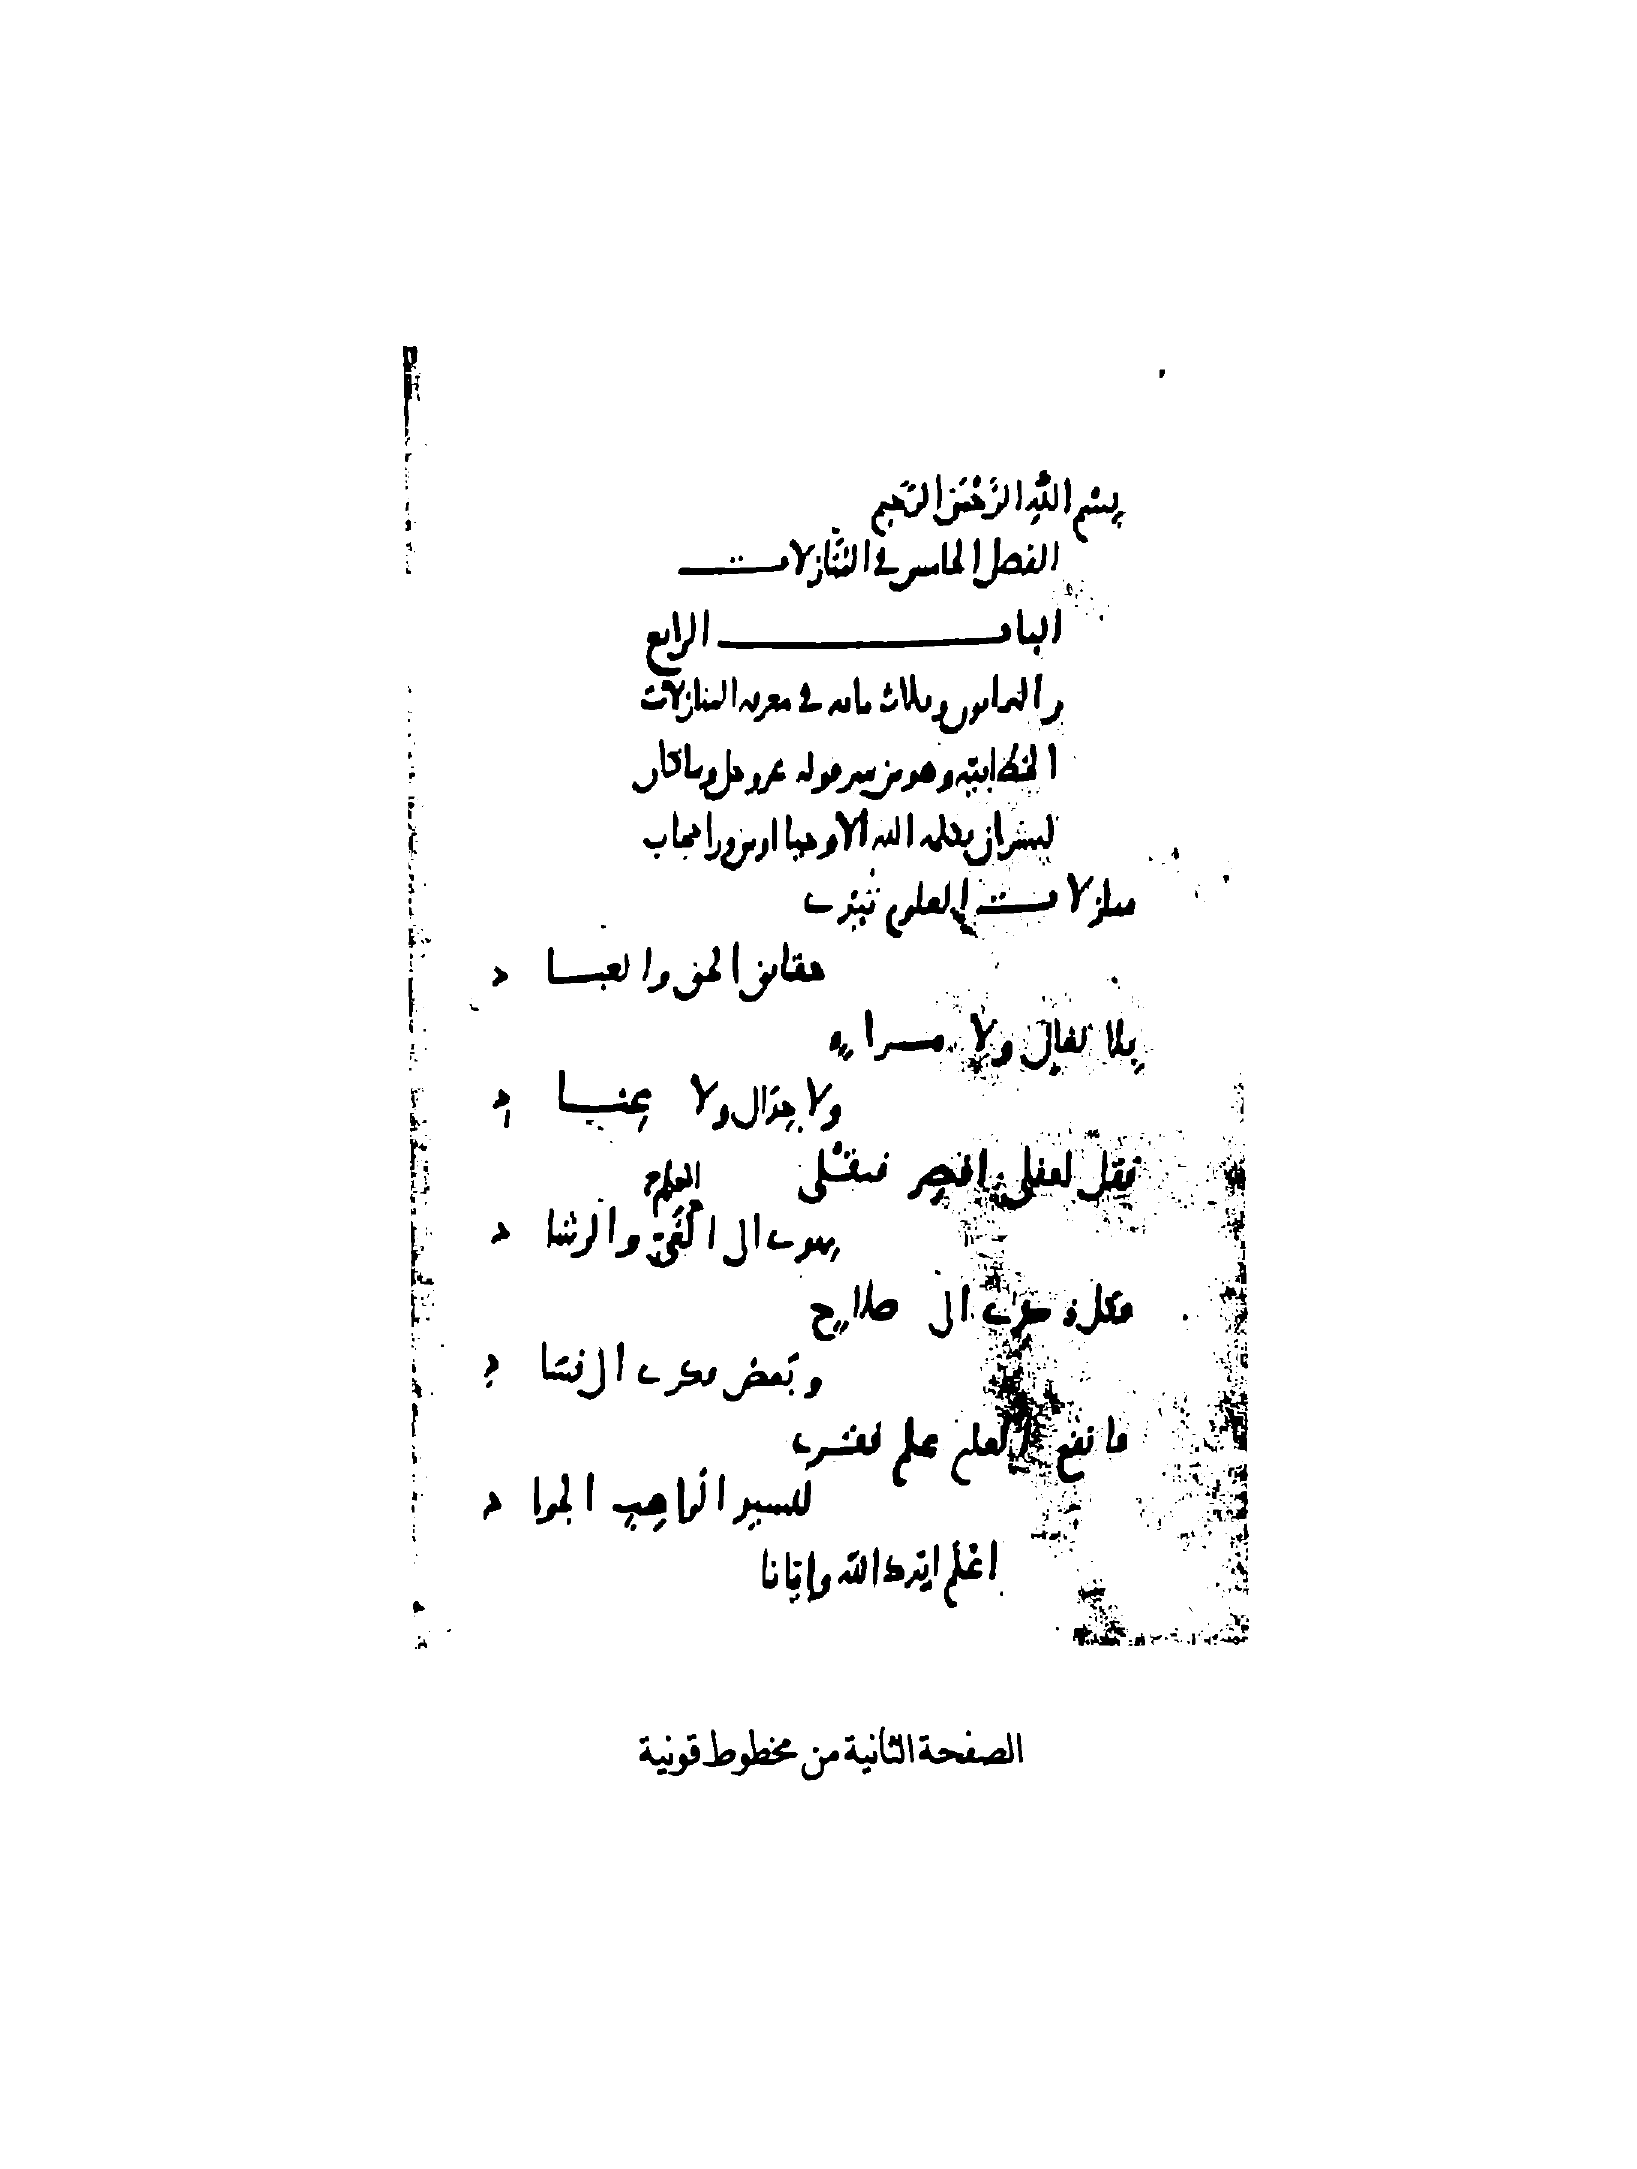 بسم الله الرحمن الرحيم
الفصل الخامس في المنازلات
الباب الرابع
والثمانون وثلاث مائة في معرفة المنازلات
الخطابية وهو من سر قوله عز وجل وما كان
لبشر ان يكلمه الله الا وحيا او من ورا حجاب
منازلات العلوم تبدي
حقائق الحق والعباد
بلا مقال ولا
ولا جدال ولا عناد
فقل لعقلي اقصر فعقلي
العلم
الى الغي والرشاد
فكل فكر الى صلاح
وبعض فكر الى فساد
ما نفع العلم علم فقري
للسيد الواهب الجواد
اعلم ايدك الله وايانا
الصفحة الثانية من مخطوط قونية